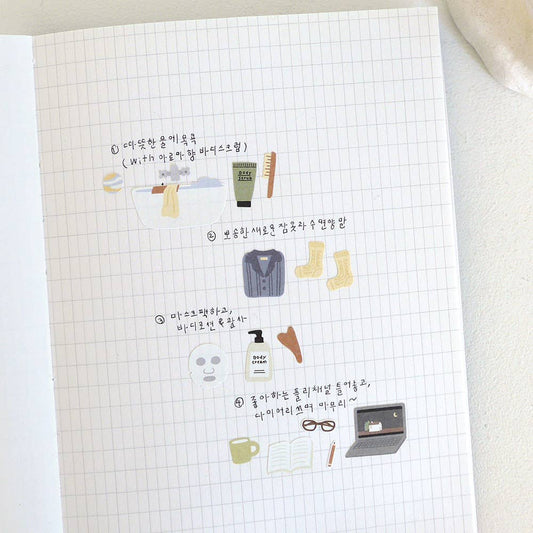 ① 따뜻한 물에 목욕
(with 아로마향 바디스크럽)
BODY
SCRUB
② 뽀송한 새로운 잠옷과 수면양말
③ 마스크팩하고,
바디로션 & 괄사
BODY
CREAM
④ 좋아하는 플리채널 틀어놓고,
다이어리 쓰며 마무리~